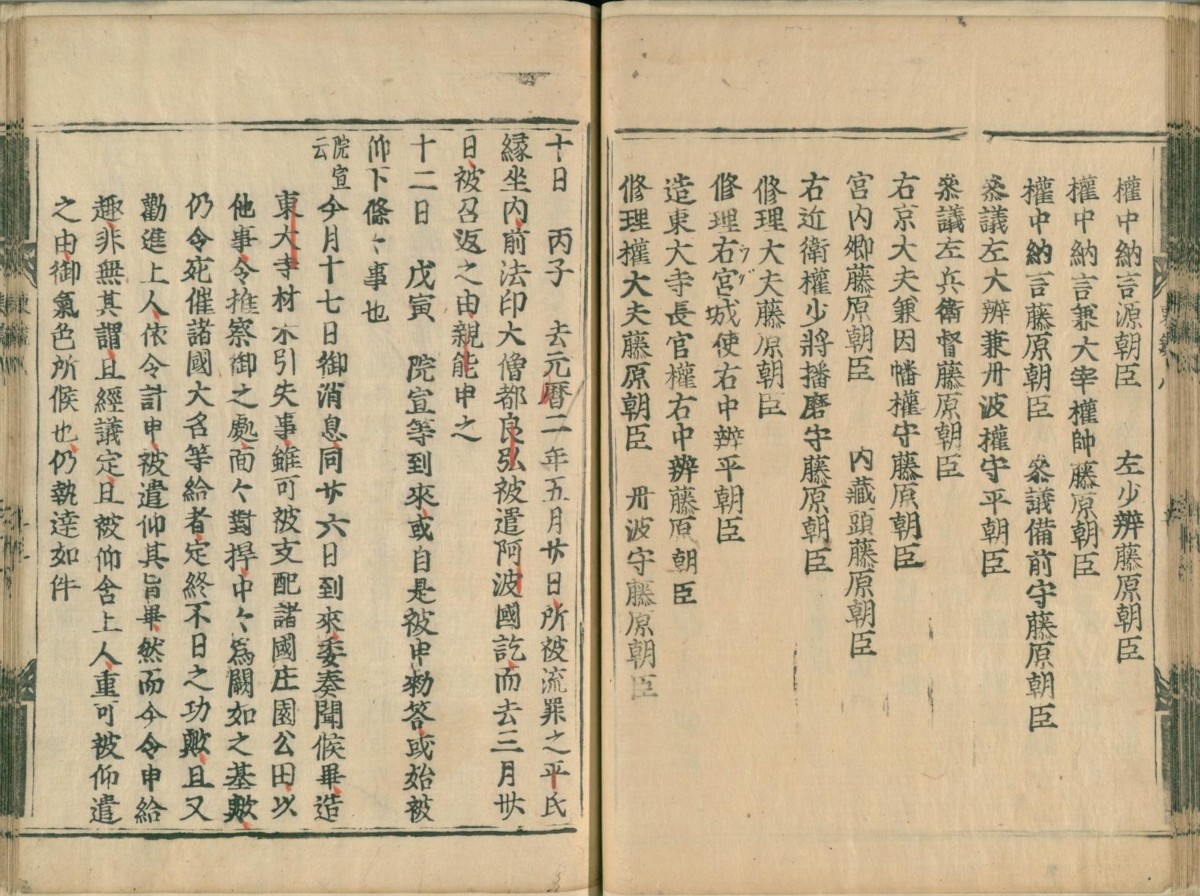 權中納言源朝臣　左少辨藤原朝臣
權中納言兼大宰權帥藤原朝臣
權中納言藤原朝臣　叅議備前守藤原朝臣
叅議左大辨兼丹波權守平朝臣
叅議左兵衛督藤原朝臣
右京大夫兼因幡權守藤原朝臣
宮内卿藤原朝臣　内藏頭藤原朝臣
右近衛權少將播磨守藤原朝臣
修理大夫藤原朝臣
修理右宮城使右中辨平朝臣
造東大寺長官權右中辨藤原朝臣
修理權大夫藤原朝臣　丹波守藤原朝臣
十日　丙子　去元曆二年五月廿日所被流罪之平氏
縁坐内前法印大僧都良弘被遣阿波國訖而去三月廿
日被召返之由親能申之
十二日　戊寅　院宣等到來或自是被申勅答或始被
仰下條〻事也
院宣云
今月十七日御消息同廿六日到來委奏聞候畢造
東大寺材木引失事雖可被支配諸國庄園公田以
他事令推察御之處面〻對捍中〻爲闕如之基歟
仍令宛催諸國大名等給者定終不日之功歟且又
勸進上人依令計申被遣仰其旨畢然而今令申給
趣非無其謂且經議定且被仰含上人重可被仰遣
之由御氣色所候也仍執達如件